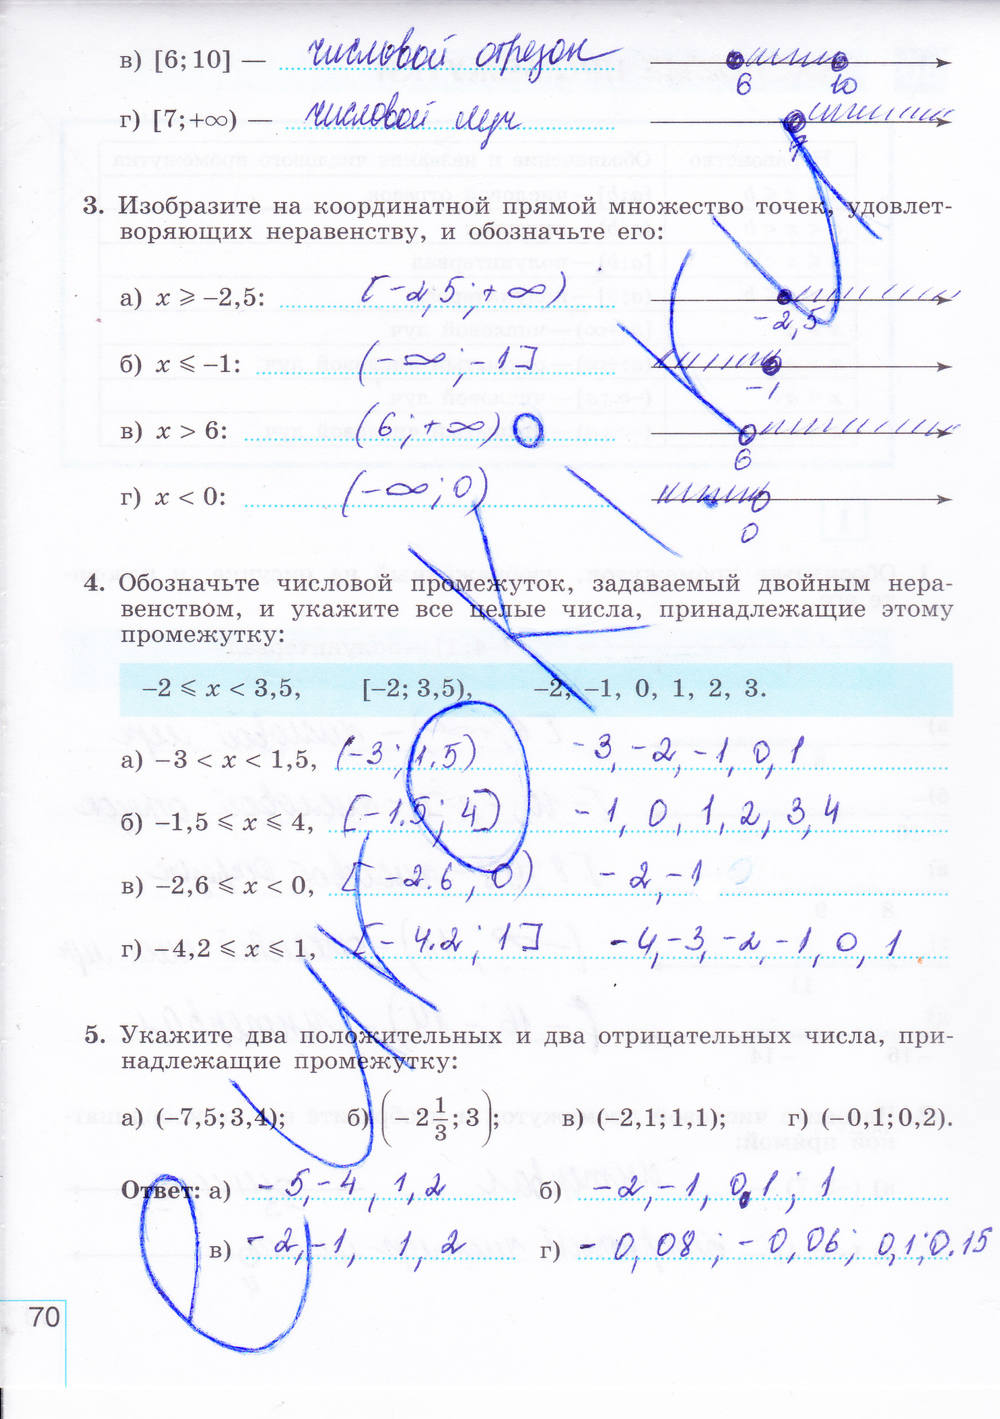 в) [6; 10] — числовой отрезок 6 10
г) [7; +∞) — числовой луч 7
3. Изобразите на координатной прямой множество точек, удовлет-
воряющих неравенству, и обозначьте его:
а) x ⩾ −2,5: [-2,5; +∞) -2,5
б) x ⩽ −1: (-∞; -1] -1
в) x > 6: (6; +∞) 6
г) x < 0: (-∞; 0) 0
4. Обозначьте числовой промежуток, задаваемый двойным нера-
венством, и укажите все целые числа, принадлежащие этому
промежутку:
−2 ⩽ x < 3,5, [−2; 3,5), −2, −1, 0, 1, 2, 3.
а) −3 < x < 1,5, (-3; 1.5) -3, -2, -1, 0, 1
б) −1,5 ⩽ x ⩽ 4, [-1.5; 4] -1, 0, 1, 2, 3, 4
в) −2,6 ⩽ x < 0, [-2.6; 0) -2, -1
г) −4,2 ⩽ x ⩽ 1, [-4.2; 1] -4, -3, -2, -1, 0, 1
5. Укажите два положительных и два отрицательных числа, при-
надлежащие промежутку:
а) (−7,5; 3,4); б) (−2 1/3; 3); в) (−2,1; 1,1); г) (−0,1; 0,2).
Ответ: а) -5, -4, 1, 2 б) -2, -1, 0,1; 1
в) -2, -1, 1, 2 г) -0,08; -0,06; 0,1; 0.15
70